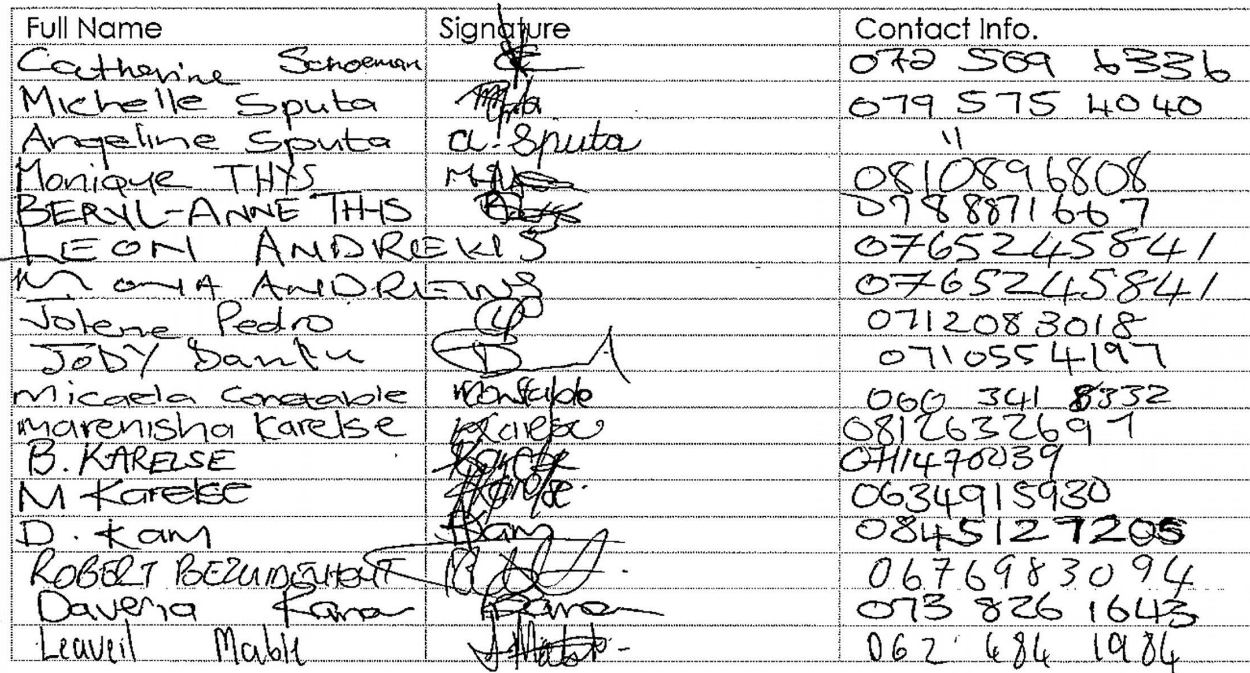 Full Name Signature Contact Info.
Catherine Schoeman 072 569 6336
Michelle Sputa 079 575 4040
Angeline Sputa a. Sputa "
Monique THYS 0810896808
BERYL-ANNE THYS 0788871667
LEON ANDREWS 0765245841
MONA ANDREWS 0765245841
Jolene Pedro 0712083018
JODY Dantu 0710554197
Micaela Constable 060 341 8332
marenisha Karelse Karelse 0812632697
B. KARELSE Karelse 0711470039
M Karelse Karelse 0634915930
D. Kam DKam 0845127205
ROBERT BEZUIDENHOUT 0676983094
Davena 073 826 1643
Leaveil Mable 062 484 1984